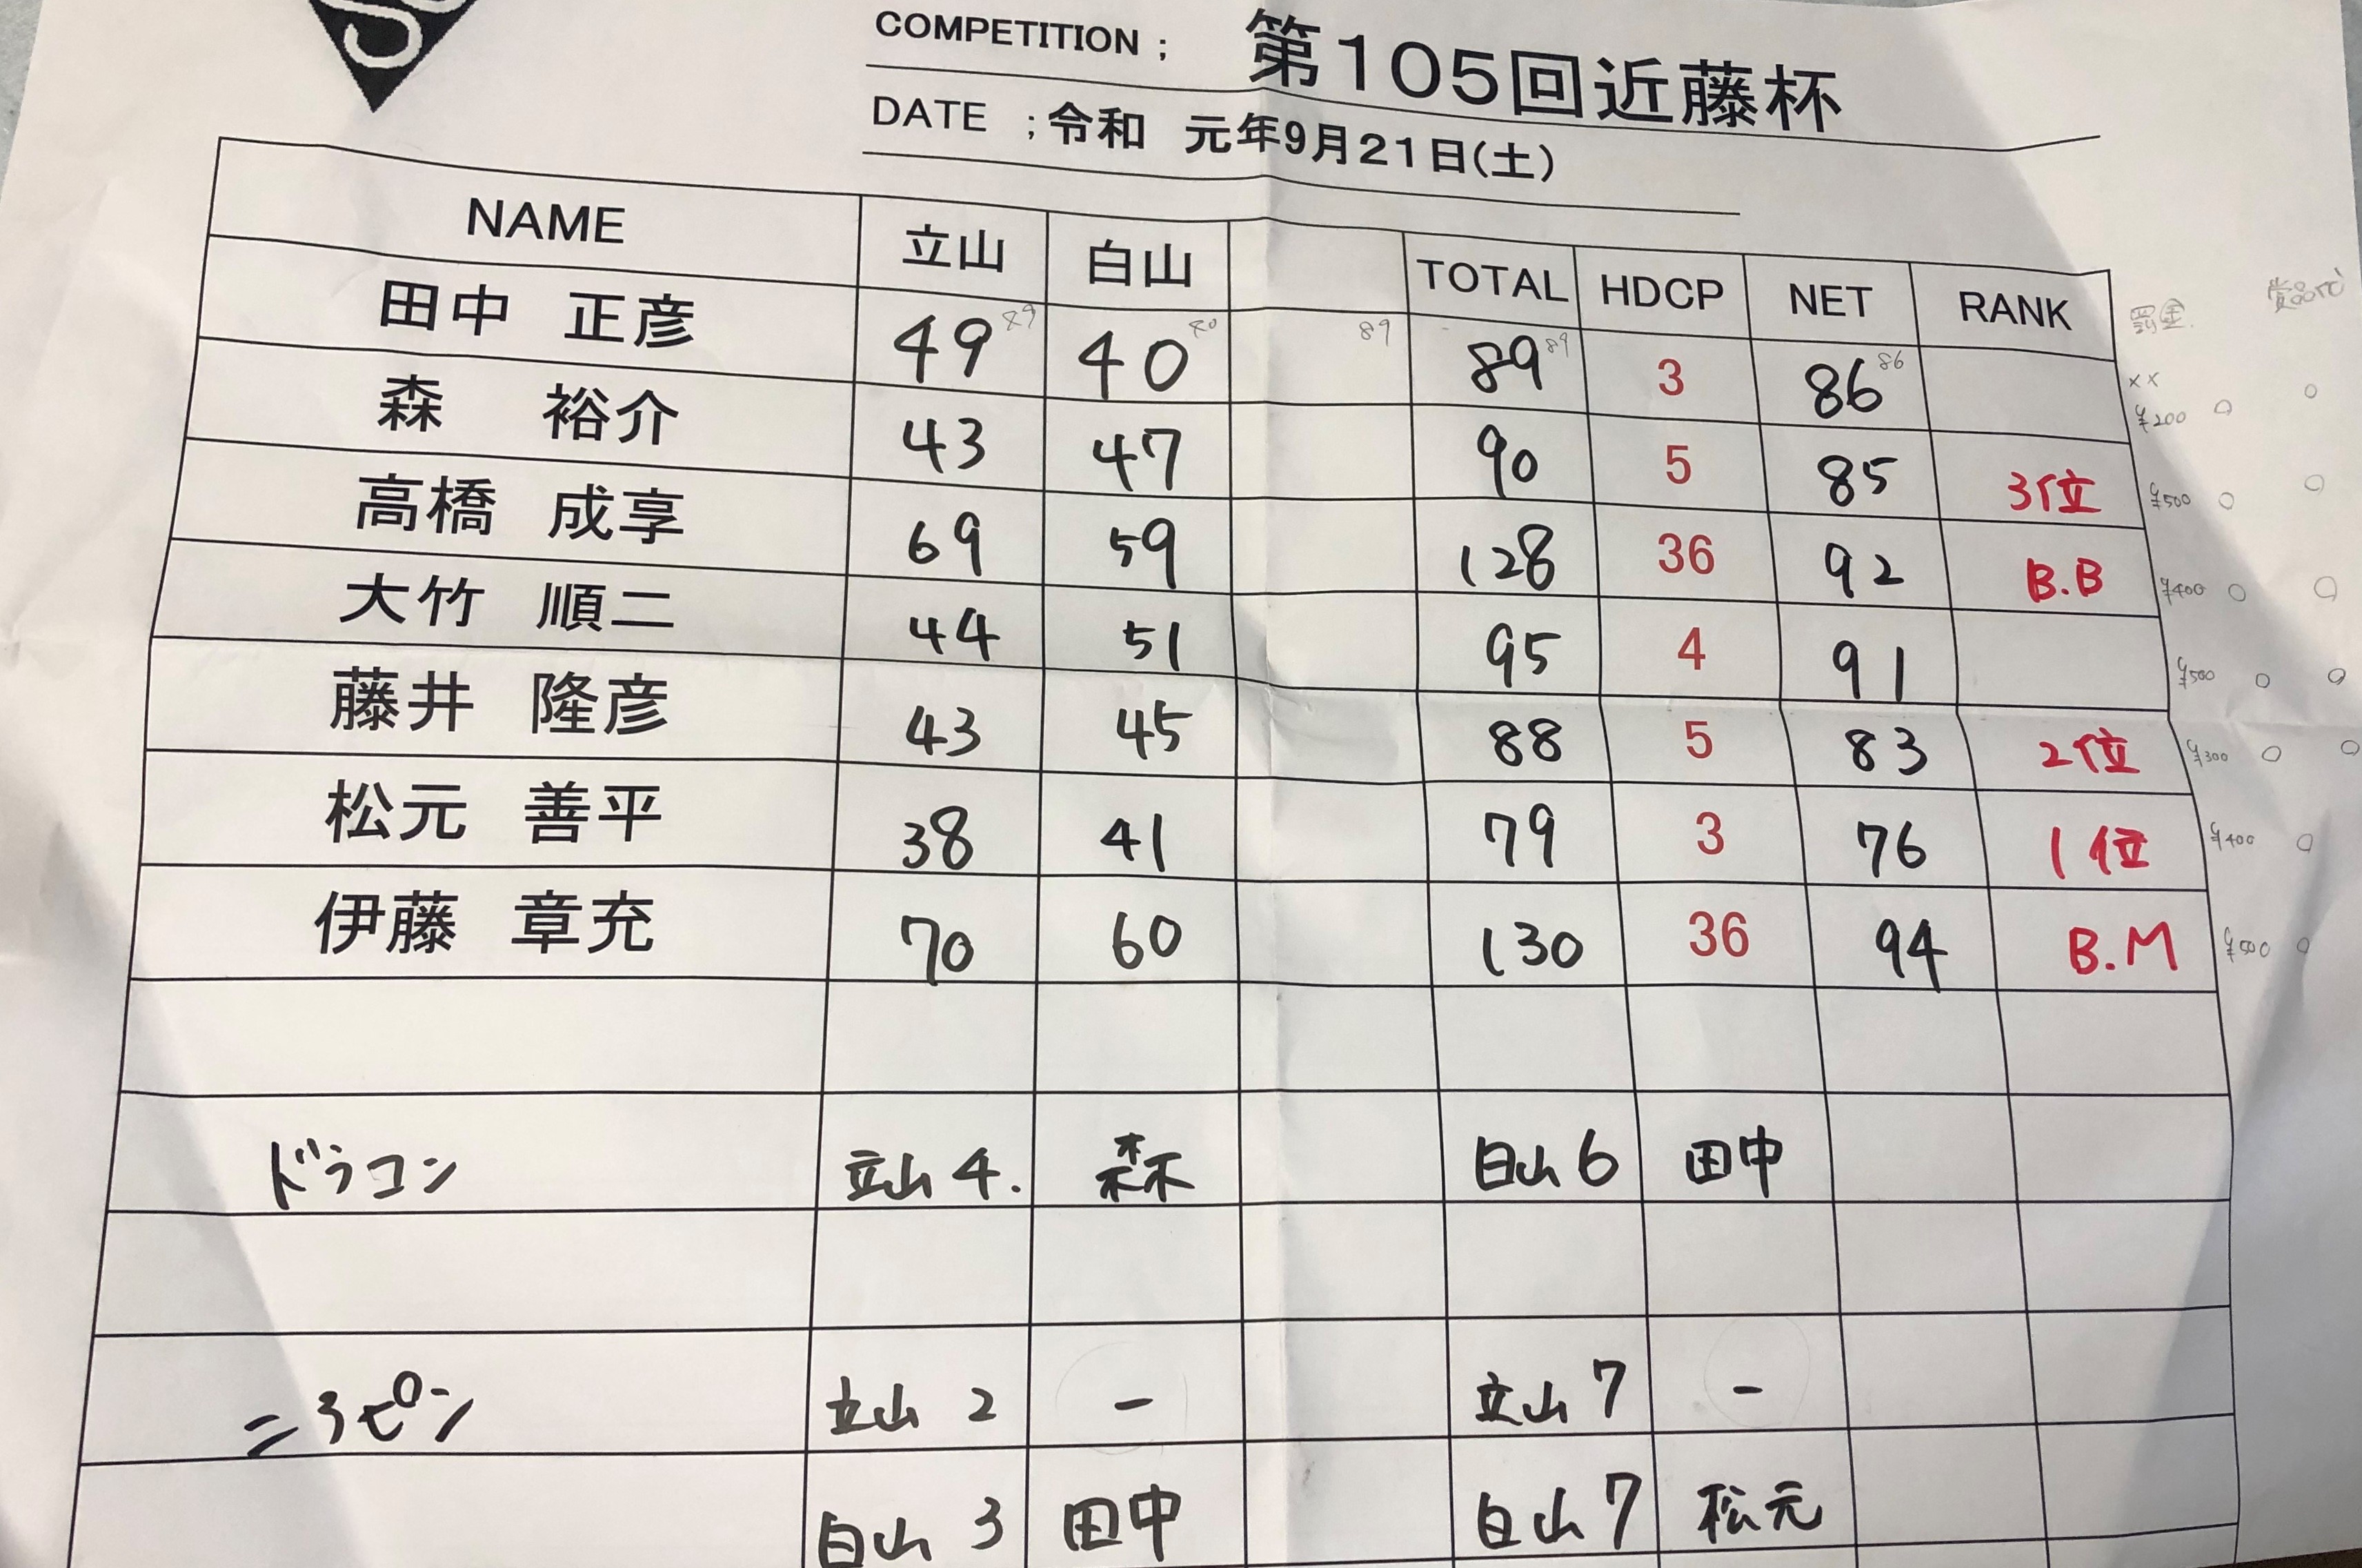 COMPETITION ; 第105回近藤杯
DATE ; 令和 元年9月21日(土)
NAME 立山 白山 TOTAL HDCP NET RANK 罰金
田中 正彦 49 40 89 89 89 3 86 86 ××
¥200 ○ ○
森 裕介 43 47 90 5 85 3位 ¥500 ○ ○
高橋 成享 69 59 128 36 92 B.B ¥400 ○ ○
大竹 順二 44 51 95 4 91 ¥500 ○ ○
藤井 隆彦 43 45 88 5 83 2位 ¥300 ○ ○
松元 善平 38 41 79 3 76 1位 ¥400 ○
伊藤 章充 70 60 130 36 94 B.M ¥500 ○
ドラコン 立山 4. 森 白山 6 田中
ニヤピン 立山 2 - 立山 7 -
白山 3 田中 白山 7 松元